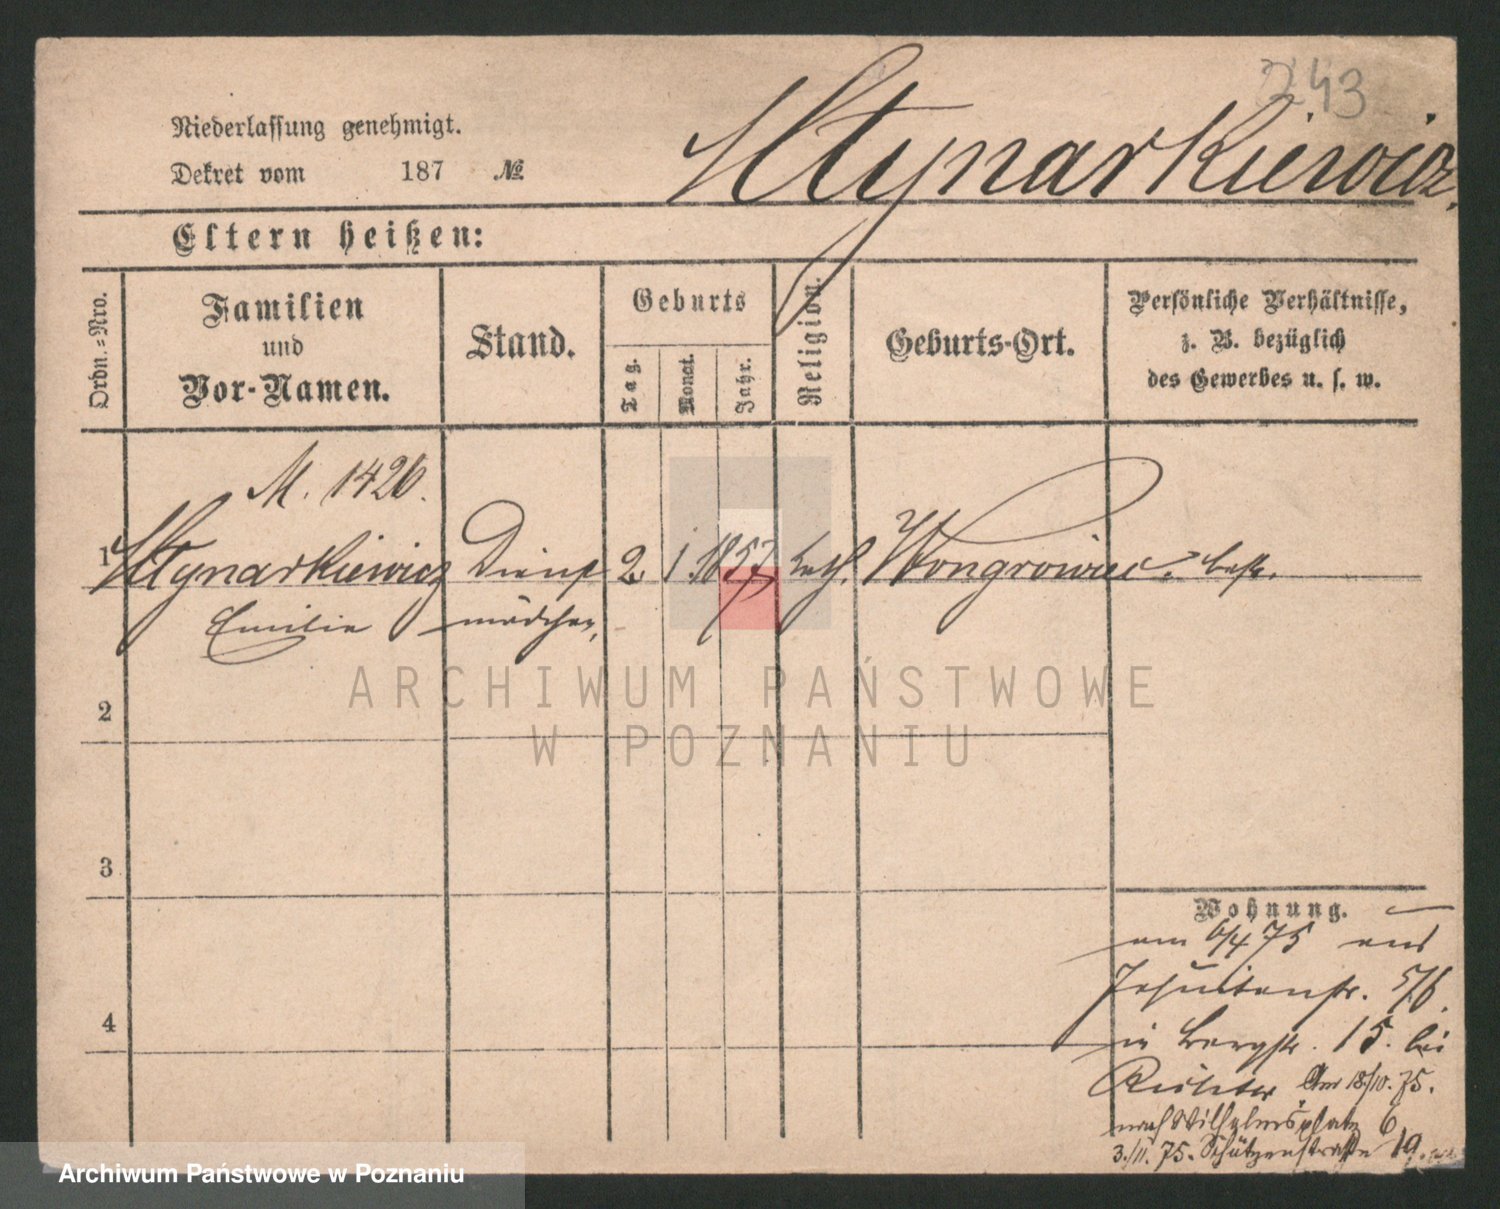 243
Niederlassung genehmigt.
Dekret vom 187 №
Młynarkiewicz.
Eltern heißen:
Ordn.=Nro.
Familien
und
Vor-Namen.
Stand.
Geburts
Tag.
Monat.
Jahr.
Religion.
Geburts-Ort.
Persönliche Verhältnisse,
z. B. bezüglich
des Gewerbes u. s. w.
M. 1426.
1 Młynarkiewicz Dienst 2. 1. 1857 kath. Wongrowiec.
Emilie mädchen,
2
3
4
Wohnung.
am 6/4 75 aus
Jesuitenstr. 5/6.
in Bergstr. 15. bei
Richter Am 18/10. 75.
nach Wilhelmsplatz 6
3./11. 75. Schützenstraße 19.
ARCHIWUM PAŃSTWOWE
W POZNANIU
Archiwum Państwowe w Poznaniu